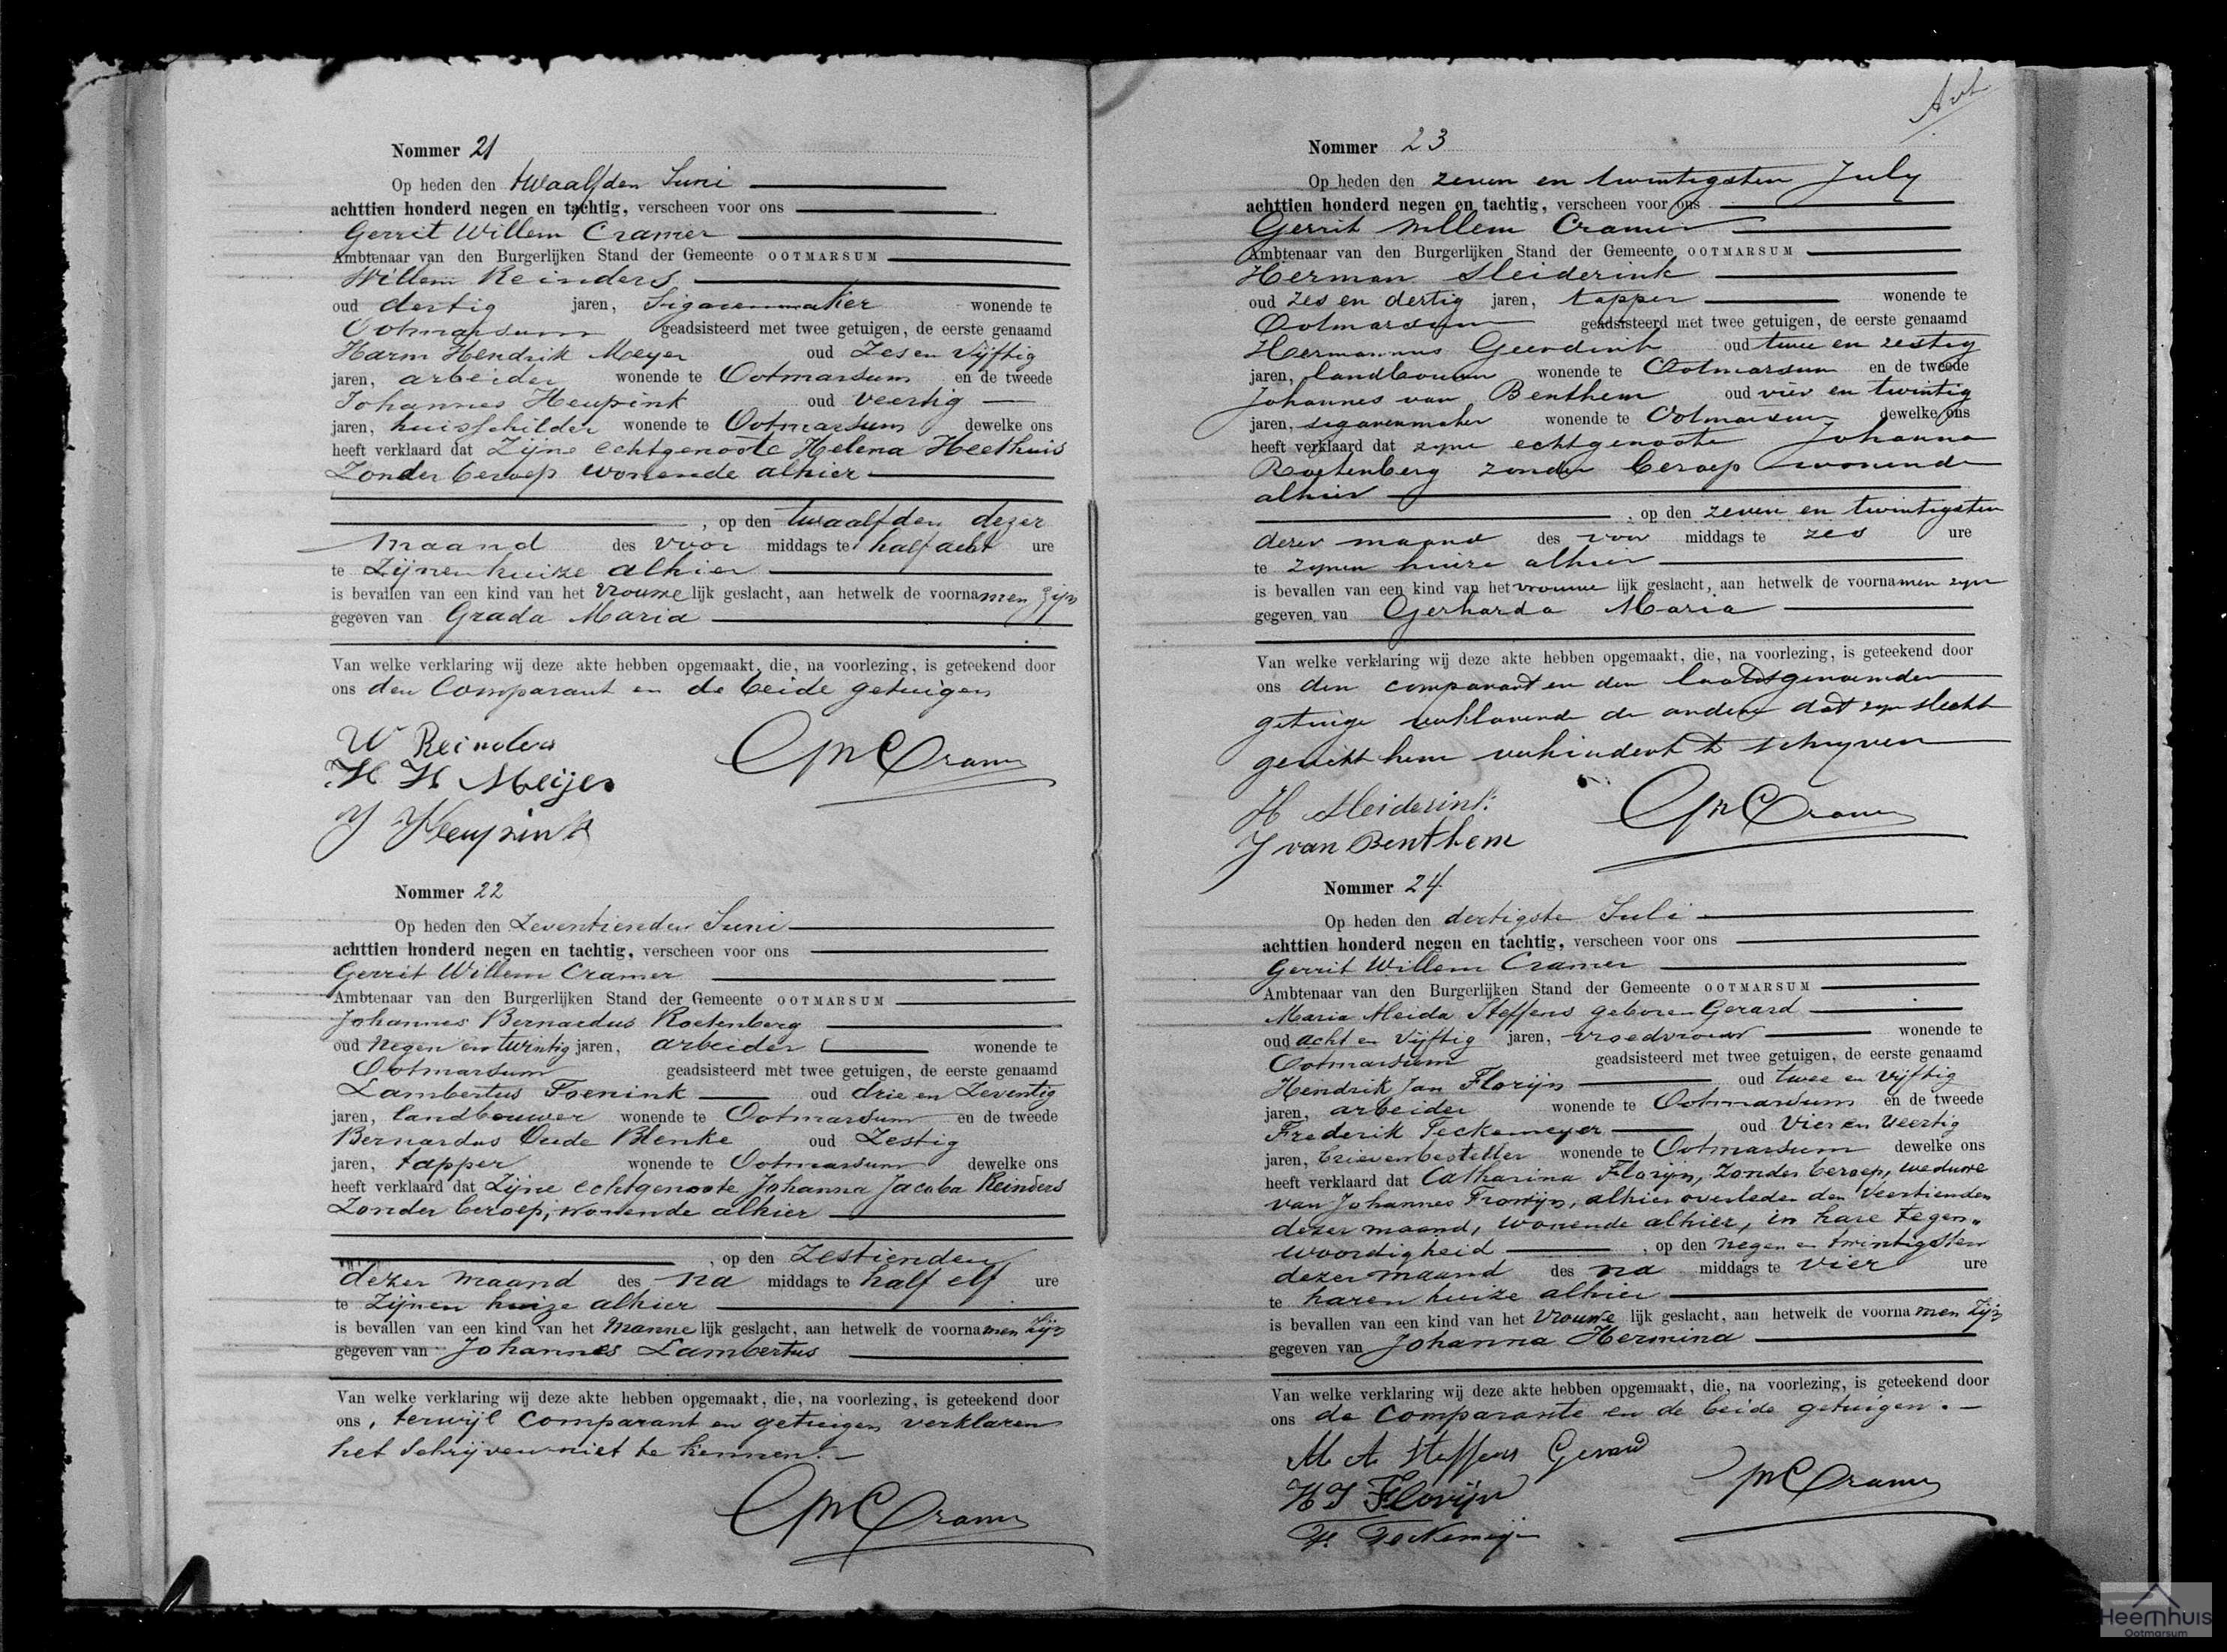 Nommer 21
Op heden den twaalfden Juni
achttien honderd negen en tachtig, verscheen voor ons
Gerrit Willem Cramer
Ambtenaar van den Burgerlijken Stand der Gemeente OOTMARSUM
Willem Reinders
oud dertig jaren, Sigarenmaker wonende te
Ootmarsum geadsisteerd met twee getuigen, de eerste genaamd
Harm Hendrik Meyer oud Zes en Vijftig
jaren, arbeider wonende te Ootmarsum en de tweede
Johannes Heupink oud veertig
jaren, huisschilder wonende te Ootmarsum dewelke ons
heeft verklaard dat Zijne echtgenoote Helena Heethuis
Zonder beroep wonende alhier
, op den twaalfden dezer
maand des voor middags te half acht ure
te Zijnen huize alhier
is bevallen van een kind van het Vrouwe lijk geslacht, aan hetwelk de voornamen zijn
gegeven van Grada Maria
Van welke verklaring wij deze akte hebben opgemaakt, die, na voorlezing, is geteekend door
ons den Comparant en de beide getuigen
W Reinders
H H Meijer
J Heupink
GWCramer
Nommer 22
Op heden den Zeventienden Juni
achttien honderd negen en tachtig, verscheen voor ons
Gerrit Willem Cramer
Ambtenaar van den Burgerlijken Stand der Gemeente OOTMARSUM
Johannes Bernardus Roetenberg
oud negen en twintig jaren, arbeider wonende te
Ootmarsum geadsisteerd met twee getuigen, de eerste genaamd
Lambertus Foenink oud drie en Zeventig
jaren, landbouwer wonende te Ootmarsum en de tweede
Bernardus Oude Blenke oud Zestig
jaren, tapper wonende te Ootmarsum dewelke ons
heeft verklaard dat Zijne echtgenoote Johanna Jacoba Reinders
Zonder beroep, wonende alhier
, op den Zestienden
dezer maand des na middags te half elf ure
te Zijnen huize alhier
is bevallen van een kind van het Manne lijk geslacht, aan hetwelk de voornamen Zijn
gegeven van Johannes Lambertus
Van welke verklaring wij deze akte hebben opgemaakt, die, na voorlezing, is geteekend door
ons, terwijl Comparant en getuigen verklaren
het Schrijven niet te kennen.
GWCramer
Nommer 23
Op heden den zeven en twintigsten July
achttien honderd negen en tachtig, verscheen voor ons
Gerrit Willem Cramer
Ambtenaar van den Burgerlijken Stand der Gemeente OOTMARSUM
Herman Sleiderink
oud zes en dertig jaren, tapper wonende te
Ootmarsum geadsisteerd met twee getuigen, de eerste genaamd
Hermannus Geerdink oud twee en zestig
jaren, landbouwer wonende te Ootmarsum en de tweede
Johannes van Benthem oud vier en twintig
jaren, sigarenmaker wonende te Ootmarsum dewelke ons
heeft verklaard dat zyne echtgenoote Johanna
Roetenberg zonder beroep wonende
alhier
, op den zeven en twintigsten
dezer maand des voor middags te zes ure
te zynen huize alhier
is bevallen van een kind van het vrouwe lijk geslacht, aan hetwelk de voornamen zyn
gegeven van Gerharda Maria
Van welke verklaring wij deze akte hebben opgemaakt, die, na voorlezing, is geteekend door
ons den comparant en den laatstgenoemden
getuige verklarende de andere dat zyn slecht
gezicht hem verhindert te schryven
H Sleiderink
J van Benthem
GWCramer
Nommer 24
Op heden den dertigste Juli
achttien honderd negen en tachtig, verscheen voor ons
Gerrit Willem Cramer
Ambtenaar van den Burgerlijken Stand der Gemeente OOTMARSUM
Maria Aleida Steffens geboren Gerard
oud acht en Vijftig jaren, vroedvrouw wonende te
Ootmarsum geadsisteerd met twee getuigen, de eerste genaamd
Hendrik Jan Florijn oud twee en Vijftig
jaren, arbeider wonende te Ootmarsum en de tweede
Frederik Teckemeyer oud Vier en Veertig
jaren, brievenbesteller wonende te Ootmarsum dewelke ons
heeft verklaard dat Catharina Florijn, Zonder beroep, weduwe
van Johannes Frowijn, alhier overleden den Veertienden
dezer maand, wonende alhier, in hare tegen„
woordigheid , op den negen en twintigsten
dezer maand des na middags te vier ure
te haren huize alhier
is bevallen van een kind van het Vrouwe lijk geslacht, aan hetwelk de voornamen Zijn
gegeven van Johanna Hermina
Van welke verklaring wij deze akte hebben opgemaakt, die, na voorlezing, is geteekend door
ons de Comparante en de beide getuigen.
M A Steffens Gerard
H J Florijn
F. Teckemeijer
GWCramer
Heemhuis
Ootmarsum